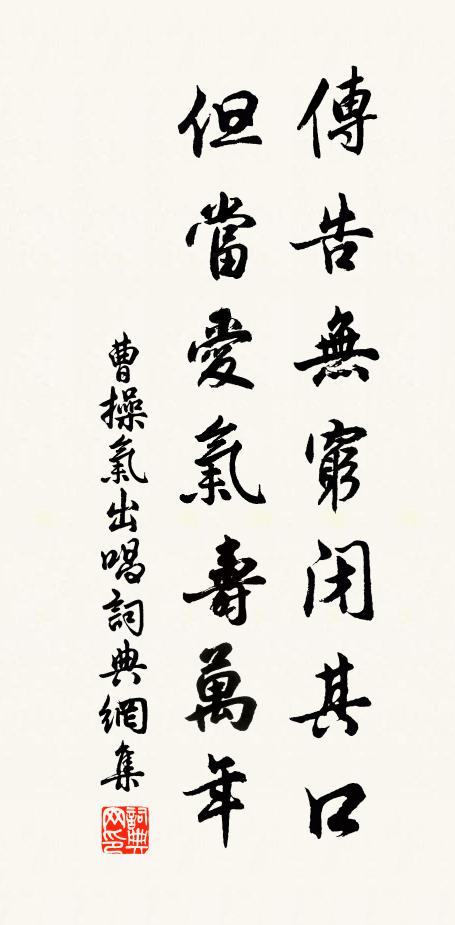 傳告無窮閉其口
但當愛氣壽萬年
曹操氣出唱詞典網集
詞典网印